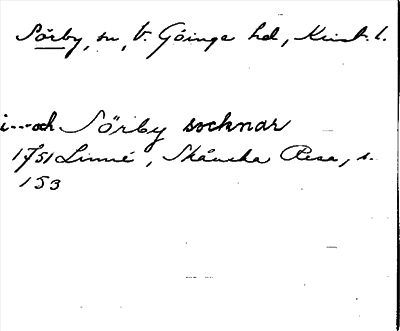 Sörby, sn, V. Göinge hd, Krist. l.
i---och Sörby socknar
1751 Linné, Skånska Resa, s.
153